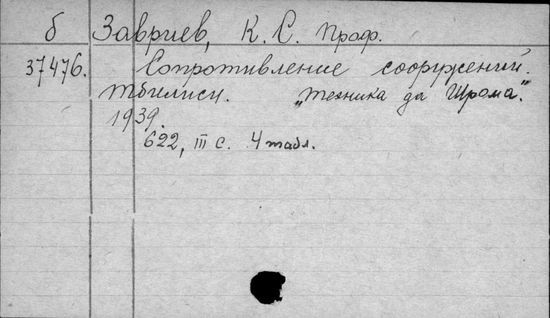 б Завриев, К. С. Проф.
37476. Сопротивление сооружений.
Тбилиси. „Техника да Шрома".
1939.
622, III с. 4 табл.